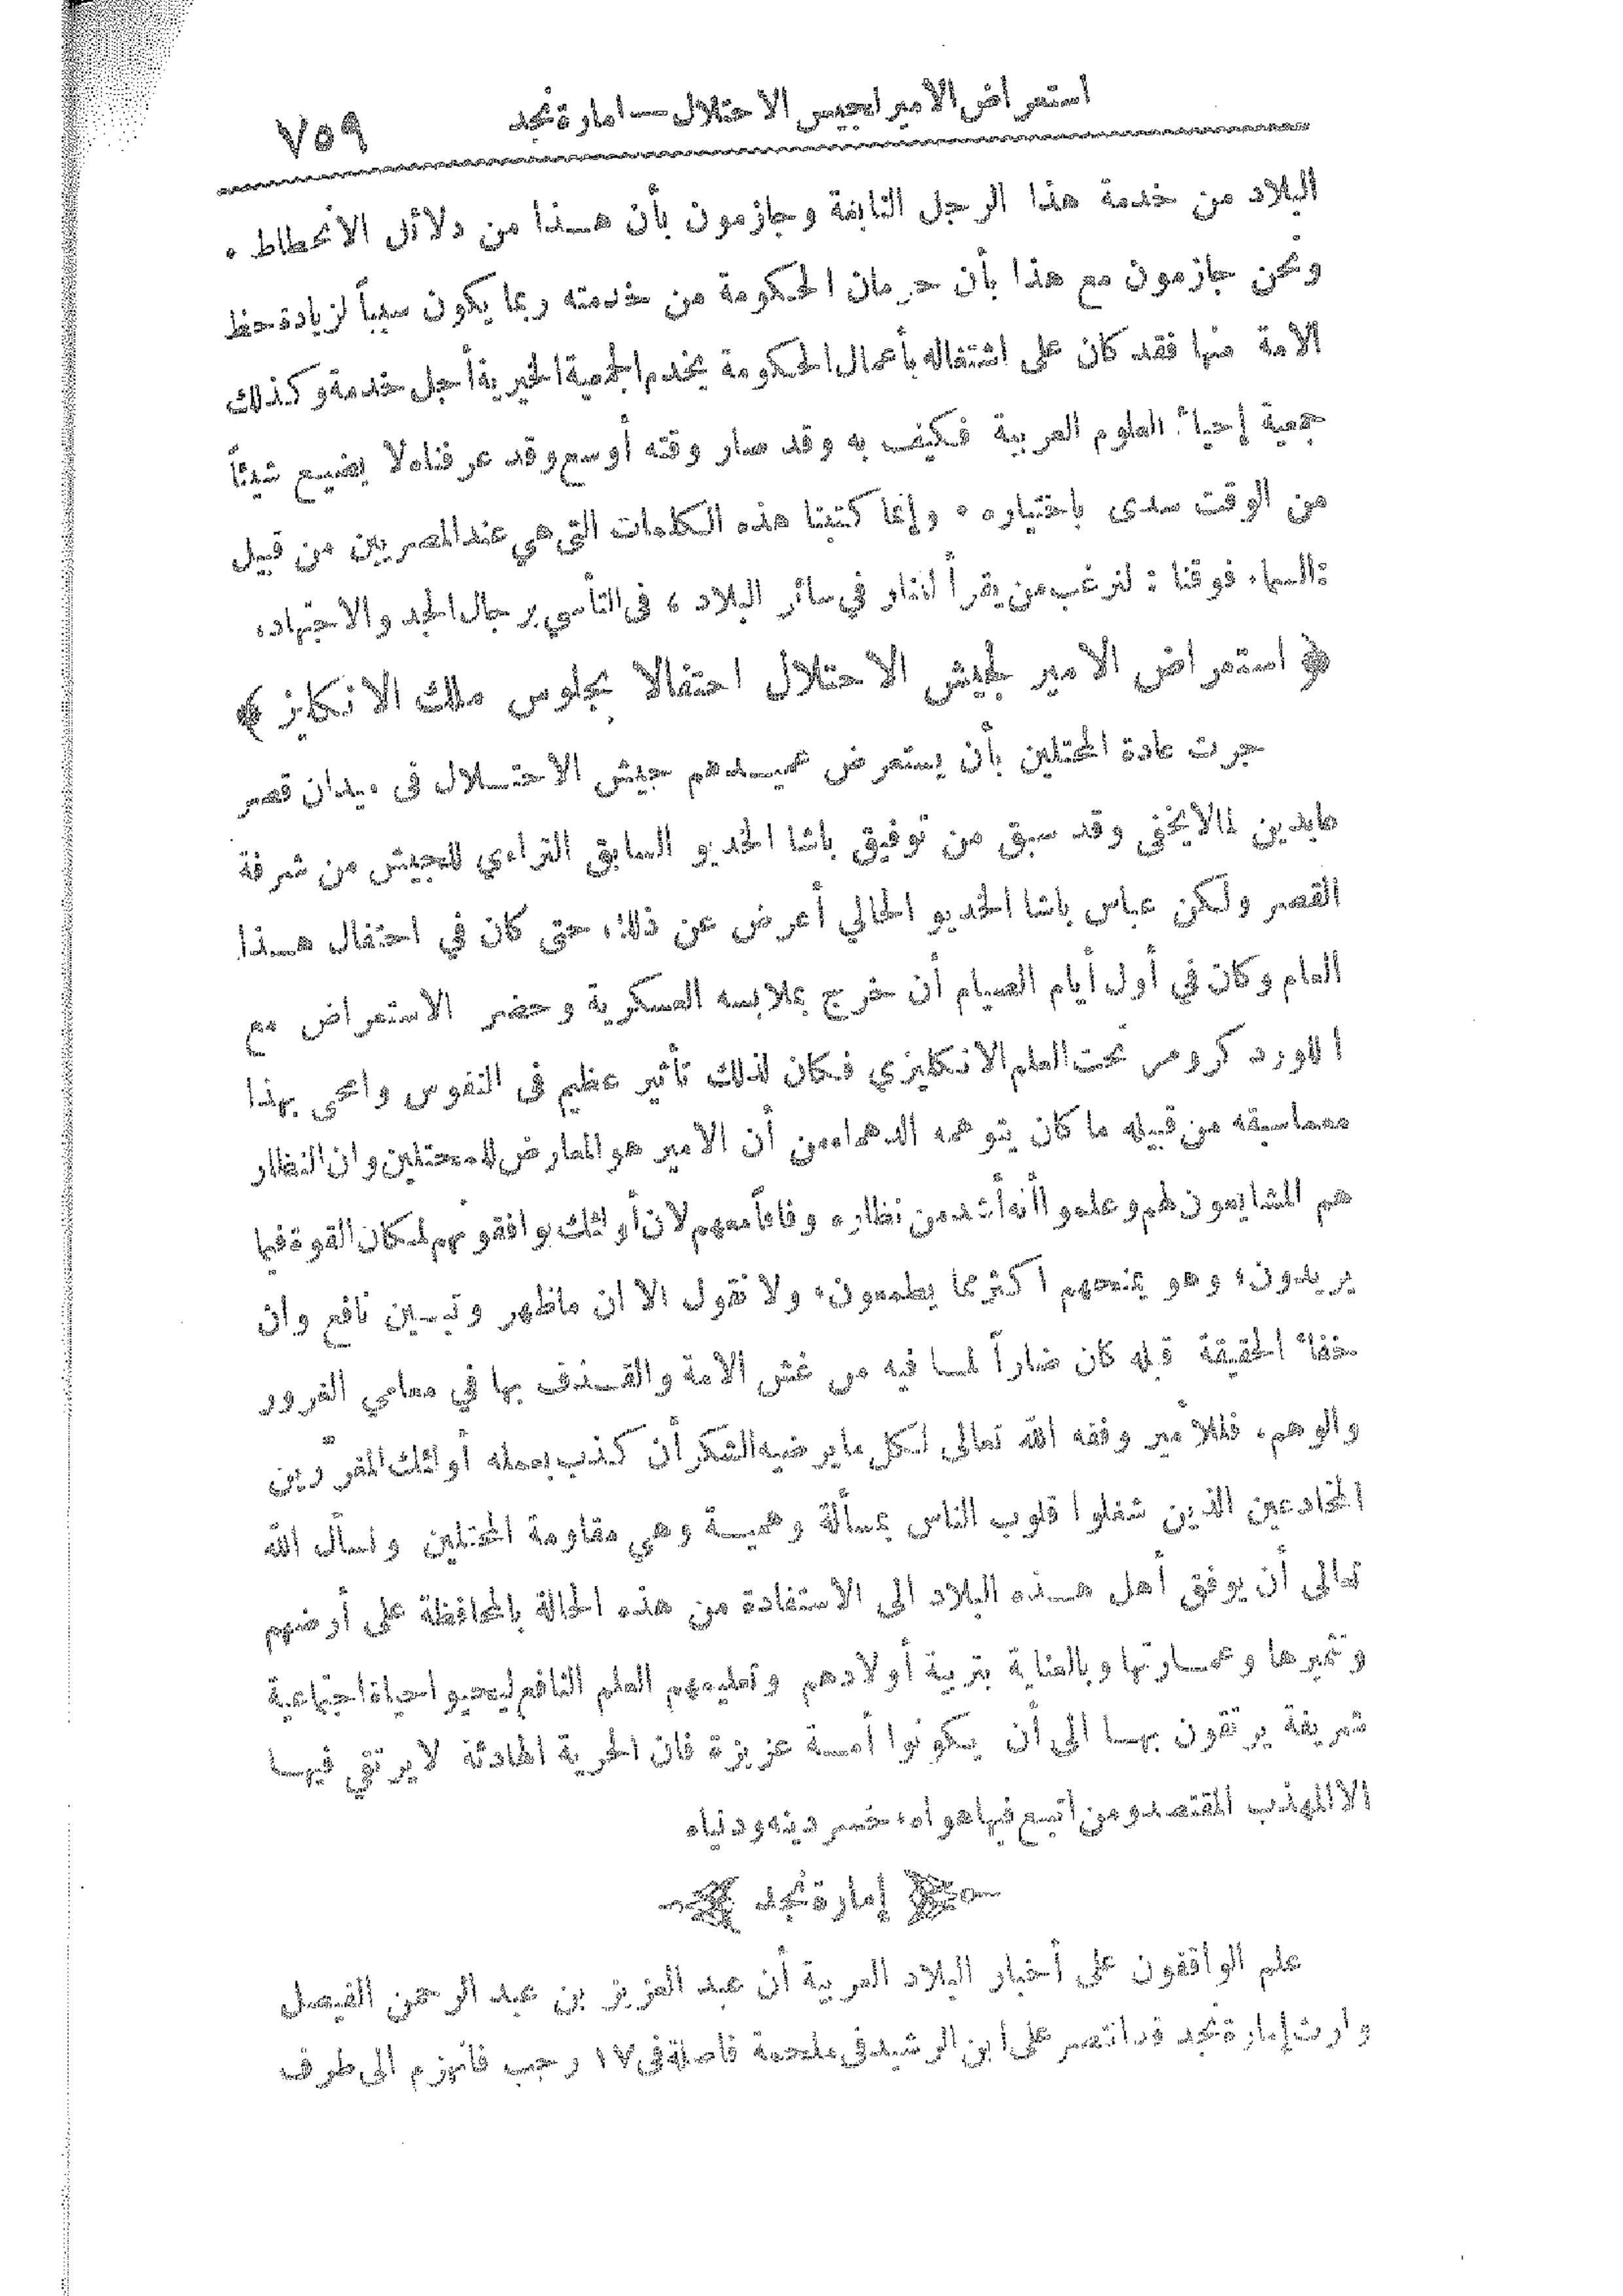 استعراض الامير لجيش الاحتلال — امارة نجد ٧٥٩
البلاد من خدمة هذا الرجل النابغة وجازمون بأن هـذا من دلائل الانحطاط .
ونحن جازمون مع هذا بأن حرمان الحكومة من خدمته ربما يكون سبباً لزيادة حظ
الامة منها فقد كان على اشتغاله بأعمال الحكومة يخدم الجمعية الخيرية أجل خدمة وكذلك
جمعية إحياء العلوم العربية فكيف به وقد صار وقته أوسع وقد عرفناه لا يضيع شيئاً
من الوقت سدى باختياره . وإنما كتبنا هذه الكلمات التي هي عند المصريين من قبيل
: السماء فوقنا : لنرغب من يقرأ المنار في سائر البلاد ، في التأسي برجال الجد والاجتهاد.
﴿ استعراض الامير لجيش الاحتلال احتفالا بجلوس ملك الانكليز ﴾
جرت عادة المحتلين بأن يستعرض عميـدهم جيش الاحتـلال في ميدان قصر
عابدين لما لا يخفى وقد سبق من توفيق باشا الخديو السابق التراءي للجيش من شرفة
القصر ولكن عباس باشا الخديو الحالي أعرض عن ذلك، حتى كان في احتفال هـذا
العام وكان في أول أيام الصيام أن خرج بملابسه العسكرية وحضر الاستعراض مع
اللورد كرومر تحت العلم الانكليزي فكان لذلك تأثير عظيم في النفوس وامحى بهذا
مع ما سبقه من قبيله ما كان يتوهمه الدهماء من أن الامير هو المعارض للمحتلين وان النظار
هم المشايعون لهم وعلموا أنه أشد من نظاره وفاقاً معهم لان أولئك يوافقونهم لمكان القوة فيما
يريدون، وهو يمنحهم اكثر مما يطمعون، ولا نقول الا ان ما ظهر وتبـين نافع وان
خفاء الحقيقة قبله كان ضاراً لمـا فيه من غش الامة والقـذف بها في معامي الغرور
والوهم. فللأمير وفقه الله تعالى لكل ما يرضيه الشكر أن كذب بعمله أولئك المغرّرين
المخادعين الذين شغلوا قلوب الناس بمسألة وهميـة وهي مقاومة المحتلين ونسأل الله
تعالى أن يوفق أهل هـذه البلاد الى الاستفادة من هذه الحالة بالمحافظة على أرضهم
وتثميرها وعمـارتها وبالعناية بتربية أولادهم وتعليمهم العلم النافع ليحيوا حياة اجتماعية
شريفة يرتقون بهـا الى أن يكونوا أمـة عزيزة فان الحرية الهادئة لا يرتقي فيهـا
الا المهذب المقتصد ومن اتبع فيها هواه، خسر دينه ودنياه
﴿ إمارة نجد ﴾
علم الواقفون على أخبار البلاد العربية أن عبد العزيز بن عبد الرحمن الفيصل
وارث إمارة نجد قد انتصر على ابن الرشيد في ملحمة فاصلة في ١٧ رجب فانهزم الى طرف